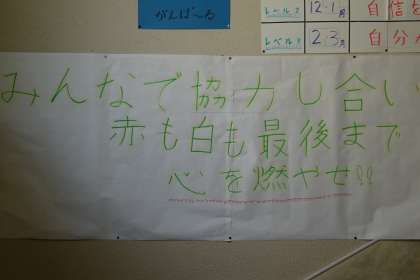 がんばーる
レベル2 12.1月 自信を
レベル3 2.3月 自分
みんなで協力し合い
赤も白も最後まで
心を燃やせ!!